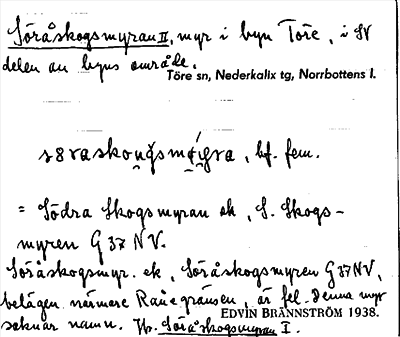 Söråskogsmyran II, myr i byn Töre, i SV
delen av byns område.
Töre sn, Nederkalix tg, Norrbottens l.
bf. fem.
= Södra Skogsmyran ek, S. Skogs-
myren G 37 NV.
Söråskogsmyr. ek, Söråskogsmyren G 37 NV,
belägen närmare Rånegränsen, är fel. Denna myr
saknar namn. Jfr. Söråskogsmyran I.
EDVIN BRÄNNSTRÖM 1938.